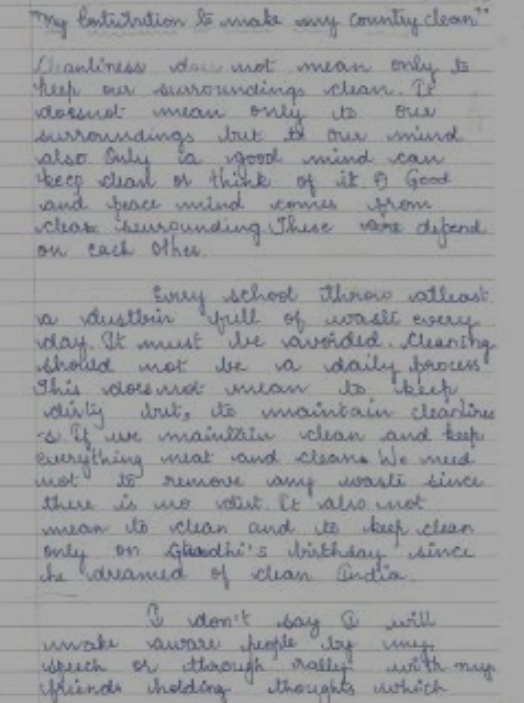 "My Contribution to make my country clean"
Cleanliness does not mean only to
keep our surroundings clean. It
doesnot mean only to our
surroundings but to our mind
also. Only a good mind can
keep clean or think of it. A Good
and peace mind comes from
clean surrounding. These are depend
on each other.
Every school throw atleast
a dustbin full of waste every
day. It must be avoided. Cleaning
should not be a daily process
This doesnot mean to keep
dirty but, to maintain cleanline
-s. If we maintain clean and keep
everything neat and clean. We need
not to remove any waste since
there is no dust. It also not
mean to clean and to keep clean
only on Gandhi's birthday since
he dreamed of clean India.
I don't say I will
make aware people by my
speech or through rally with my
friends holding thoughts which